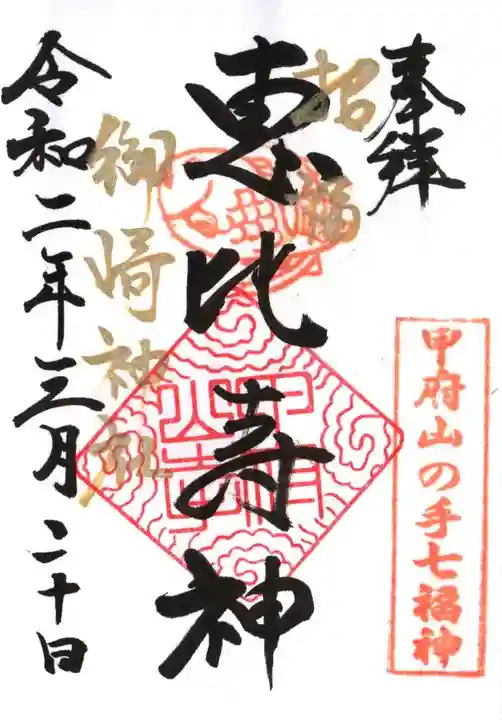 奉拝
甲府山の手七福神
招福
恵比寿神
御崎神社
令和二年三月二十日